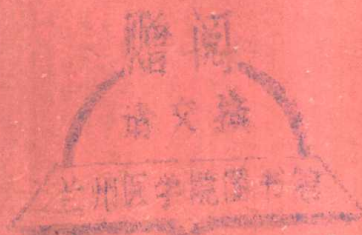 赠阅
请交换
兰州医学院图书馆